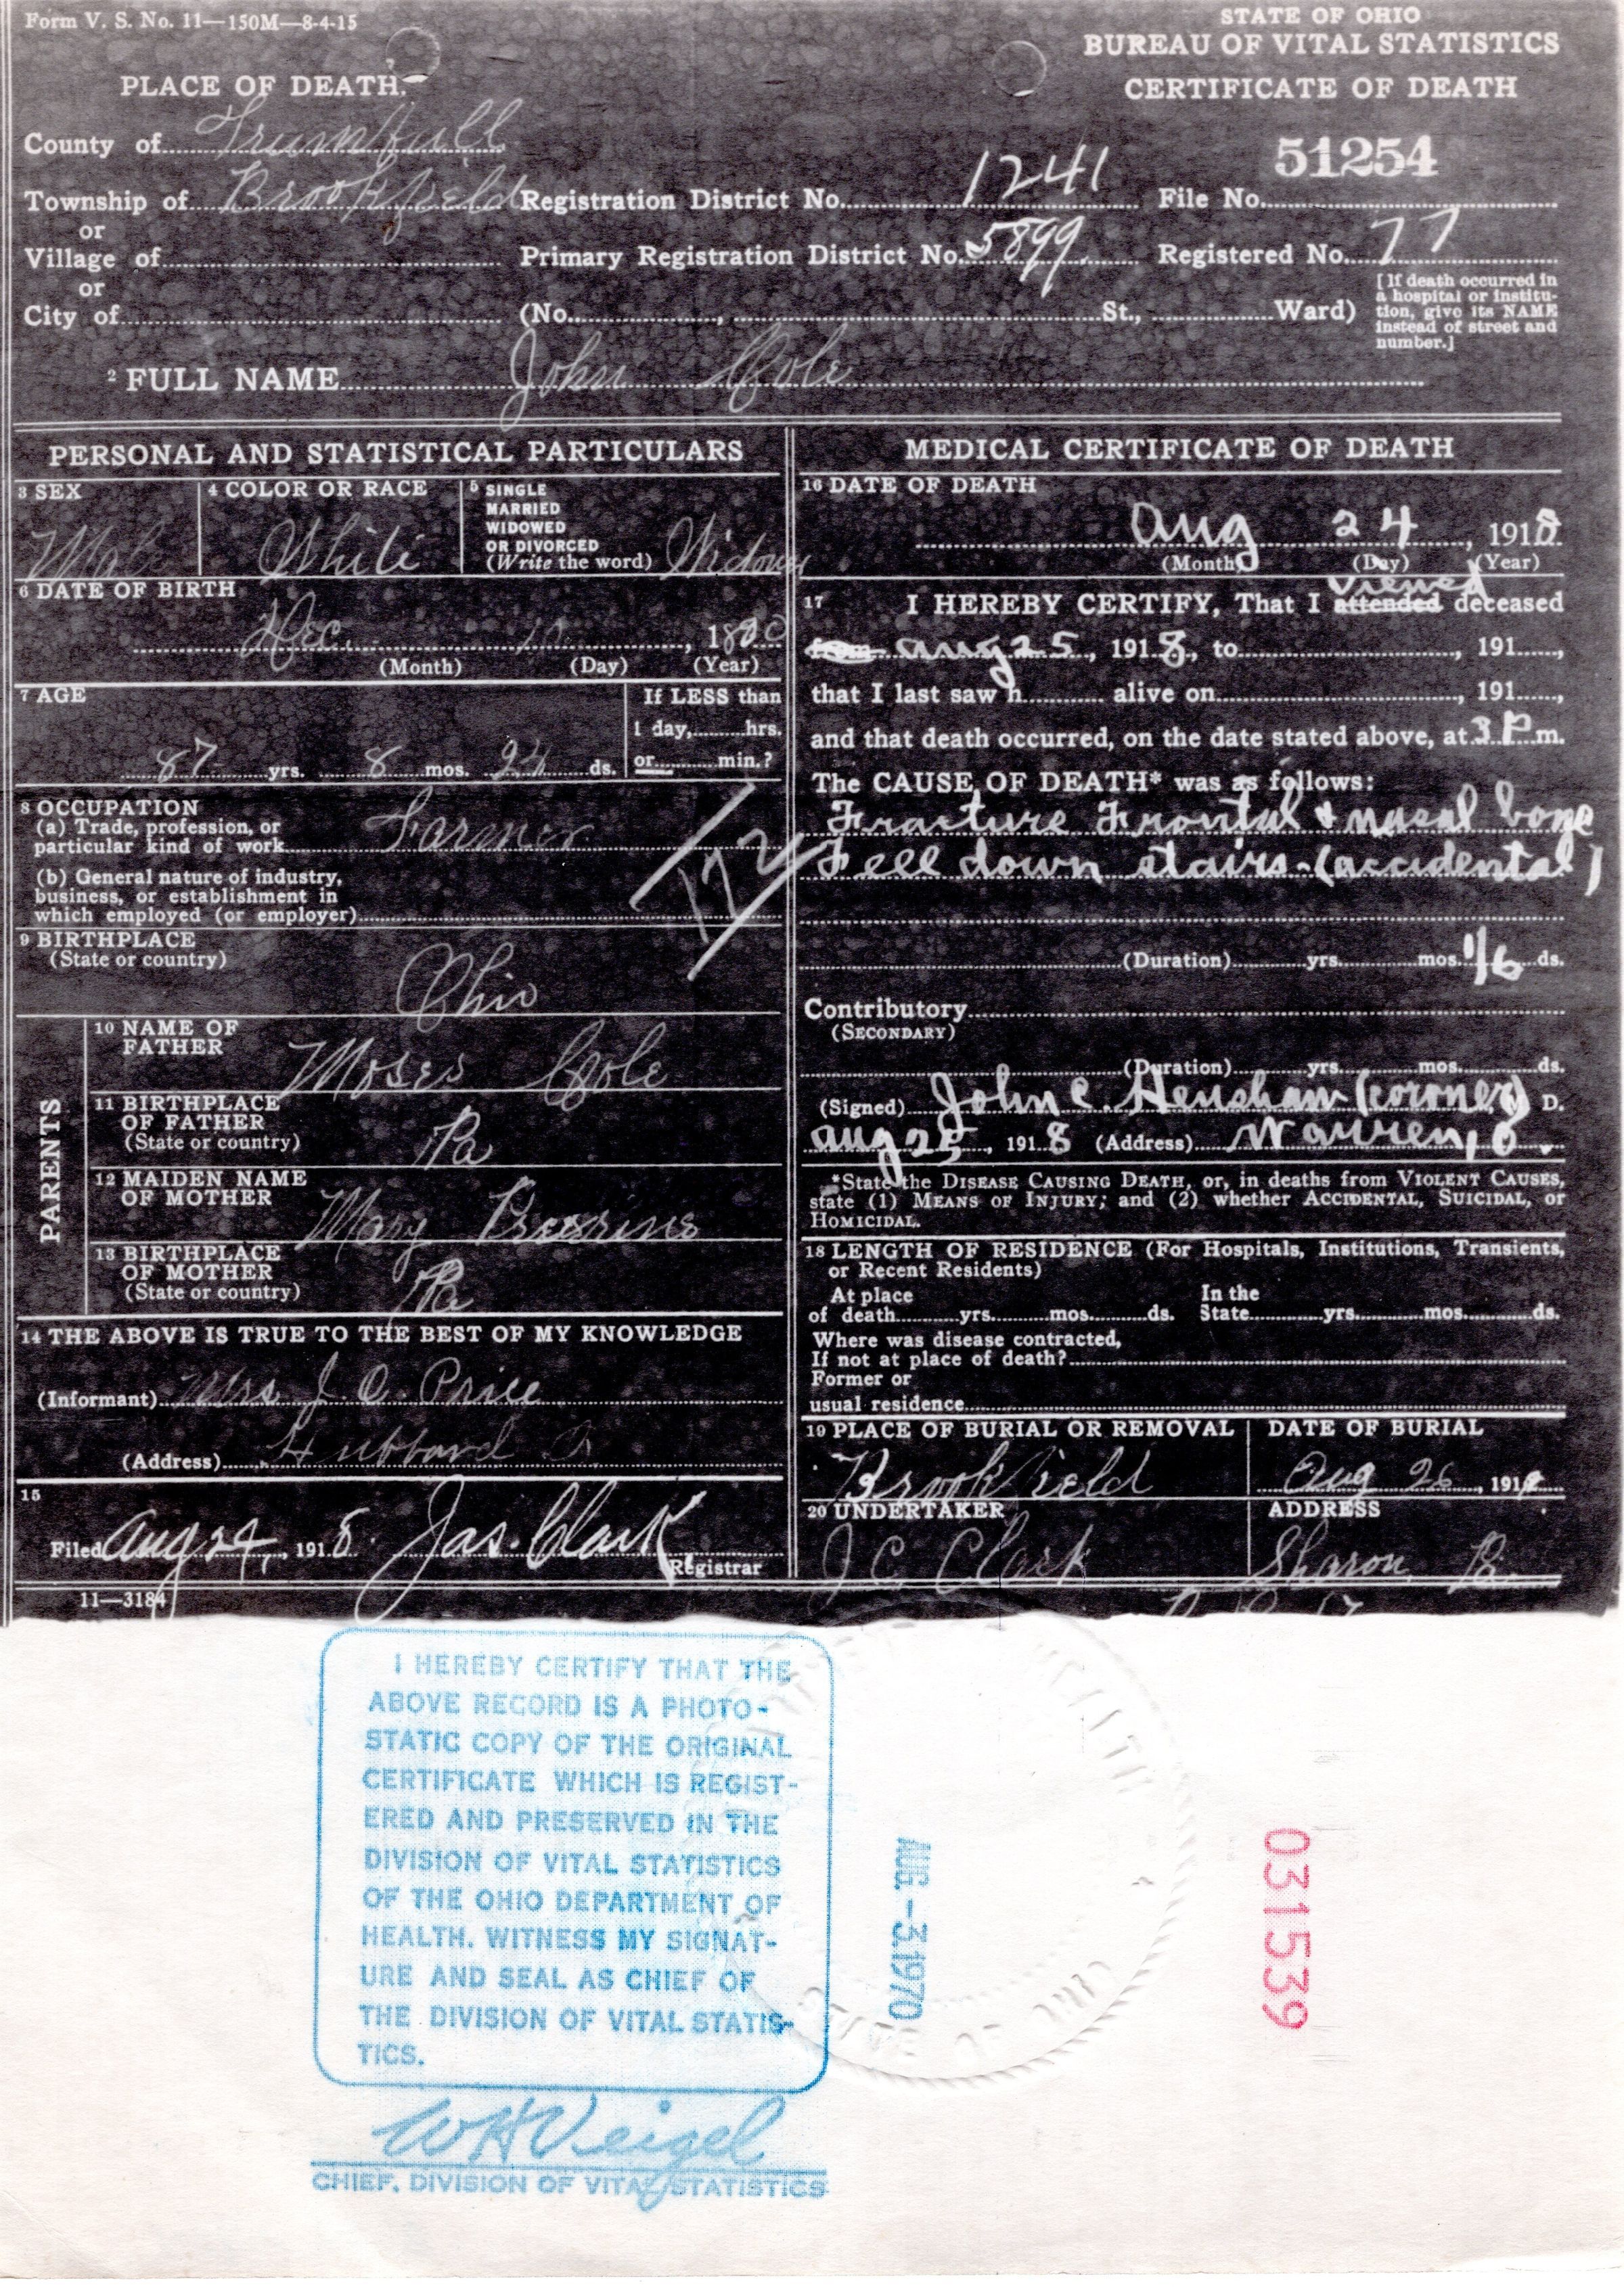 Form V. S. No. 11—150M—8-4-15
STATE OF OHIO
BUREAU OF VITAL STATISTICS
CERTIFICATE OF DEATH
PLACE OF DEATH.
51254
County of Trumbull
Township of Brookfield Registration District No. 1241 File No.
or
Village of Primary Registration District No. 5899 Registered No. 77
or
City of (No. , St., Ward)
[If death occurred in
a hospital or institu-
tion, give its NAME
instead of street and
number.]
2 FULL NAME John Cole
PERSONAL AND STATISTICAL PARTICULARS
3 SEX
Male
4 COLOR OR RACE
White
5 SINGLE
MARRIED
WIDOWED
OR DIVORCED
(Write the word) Widower
6 DATE OF BIRTH
Dec. , 18
(Month) (Day) (Year)
7 AGE
87 yrs. 8 mos. 24 ds.
If LESS than
1 day, hrs.
or min.?
8 OCCUPATION
(a) Trade, profession, or
particular kind of work Farmer
(b) General nature of industry,
business, or establishment in
which employed (or employer)
172
9 BIRTHPLACE
(State or country)
Ohio
PARENTS
10 NAME OF
FATHER
Moses Cole
11 BIRTHPLACE
OF FATHER
(State or country)
Pa
12 MAIDEN NAME
OF MOTHER
Mary
13 BIRTHPLACE
OF MOTHER
(State or country)
Pa
14 THE ABOVE IS TRUE TO THE BEST OF MY KNOWLEDGE
(Informant) Mrs. J. O. Price
(Address) Hubbard O.
15
Filed Aug 24, 1918 Jas. Clark
Registrar
11—3184
MEDICAL CERTIFICATE OF DEATH
16 DATE OF DEATH
Aug 24, 1918
(Month) (Day) (Year)
viewed
17 I HEREBY CERTIFY, That I attended deceased
from Aug 25, 1918, to , 191 ,
that I last saw h alive on , 191 ,
and that death occurred, on the date stated above, at 3 P m.
The CAUSE OF DEATH* was as follows:
Fracture Frontal & nasal bone
Fell down stairs-(accidental)
(Duration) yrs. mos. 1/6 ds.
Contributory
(SECONDARY)
(Duration) yrs. mos. ds.
(Signed) John C. Henshaw (coroner) M. D.
Aug 25, 1918 (Address) Warren, O.
*State the DISEASE CAUSING DEATH, or, in deaths from VIOLENT CAUSES,
state (1) MEANS OF INJURY; and (2) whether ACCIDENTAL, SUICIDAL, or
HOMICIDAL.
18 LENGTH OF RESIDENCE (For Hospitals, Institutions, Transients,
or Recent Residents)
At place In the
of death yrs. mos. ds. State yrs. mos. ds.
Where was disease contracted,
If not at place of death?
Former or
usual residence
19 PLACE OF BURIAL OR REMOVAL
Brookfield
DATE OF BURIAL
Aug 26, 1918
20 UNDERTAKER
J C Clark
ADDRESS
Sharon Pa.
I HEREBY CERTIFY THAT THE
ABOVE RECORD IS A PHOTO-
STATIC COPY OF THE ORIGINAL
CERTIFICATE WHICH IS REGIST-
ERED AND PRESERVED IN THE
DIVISION OF VITAL STATISTICS
OF THE OHIO DEPARTMENT OF
HEALTH. WITNESS MY SIGNAT-
URE AND SEAL AS CHIEF OF
THE DIVISION OF VITAL STATIS-
TICS.
W H Veigel
CHIEF, DIVISION OF VITAL STATISTICS
AUG.-3.1970
031539
STATE OF OHIO